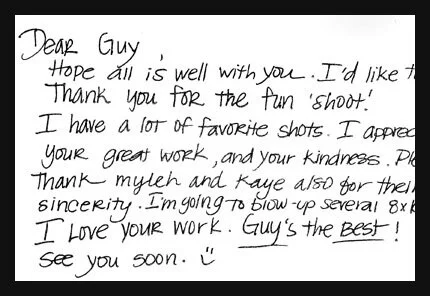 Dear Guy,
Hope all is well with you. I'd like t
Thank you for the fun 'shoot!'
I have a lot of favorite shots. I apprec
your great work, and your kindness. Ple
Thank myleh and Kaye also for their
sincerity. I'm going to blow-up several 8x1
I Love your work. Guy's the Best!
See you soon. :)